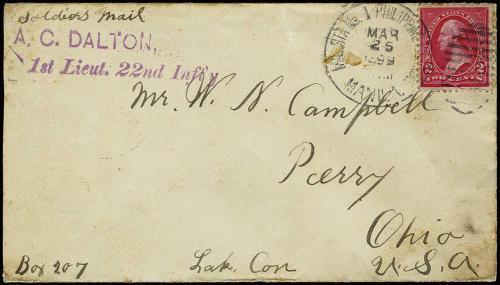 Soldiers Mail
A. C. DALTON,
1st Lieut. 22nd Inf'y
MIL. STA. No. 1 PHILIPPINE
MAR
25
1899
MANILA
2 2
TWO CENTS
Mr. W. N. Campbell
Perry
Ohio
Box 207 Lak. Con U.S.A.